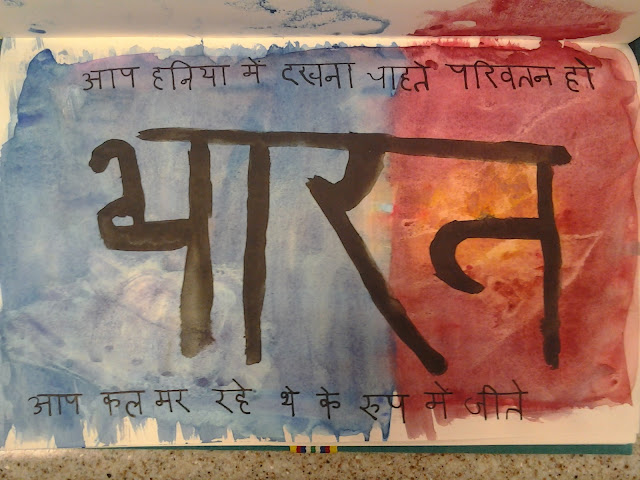 आप हनिया में दखना चाहते परिवतन हो
भारत
आप कल मर रहे थे के रुप में जीते